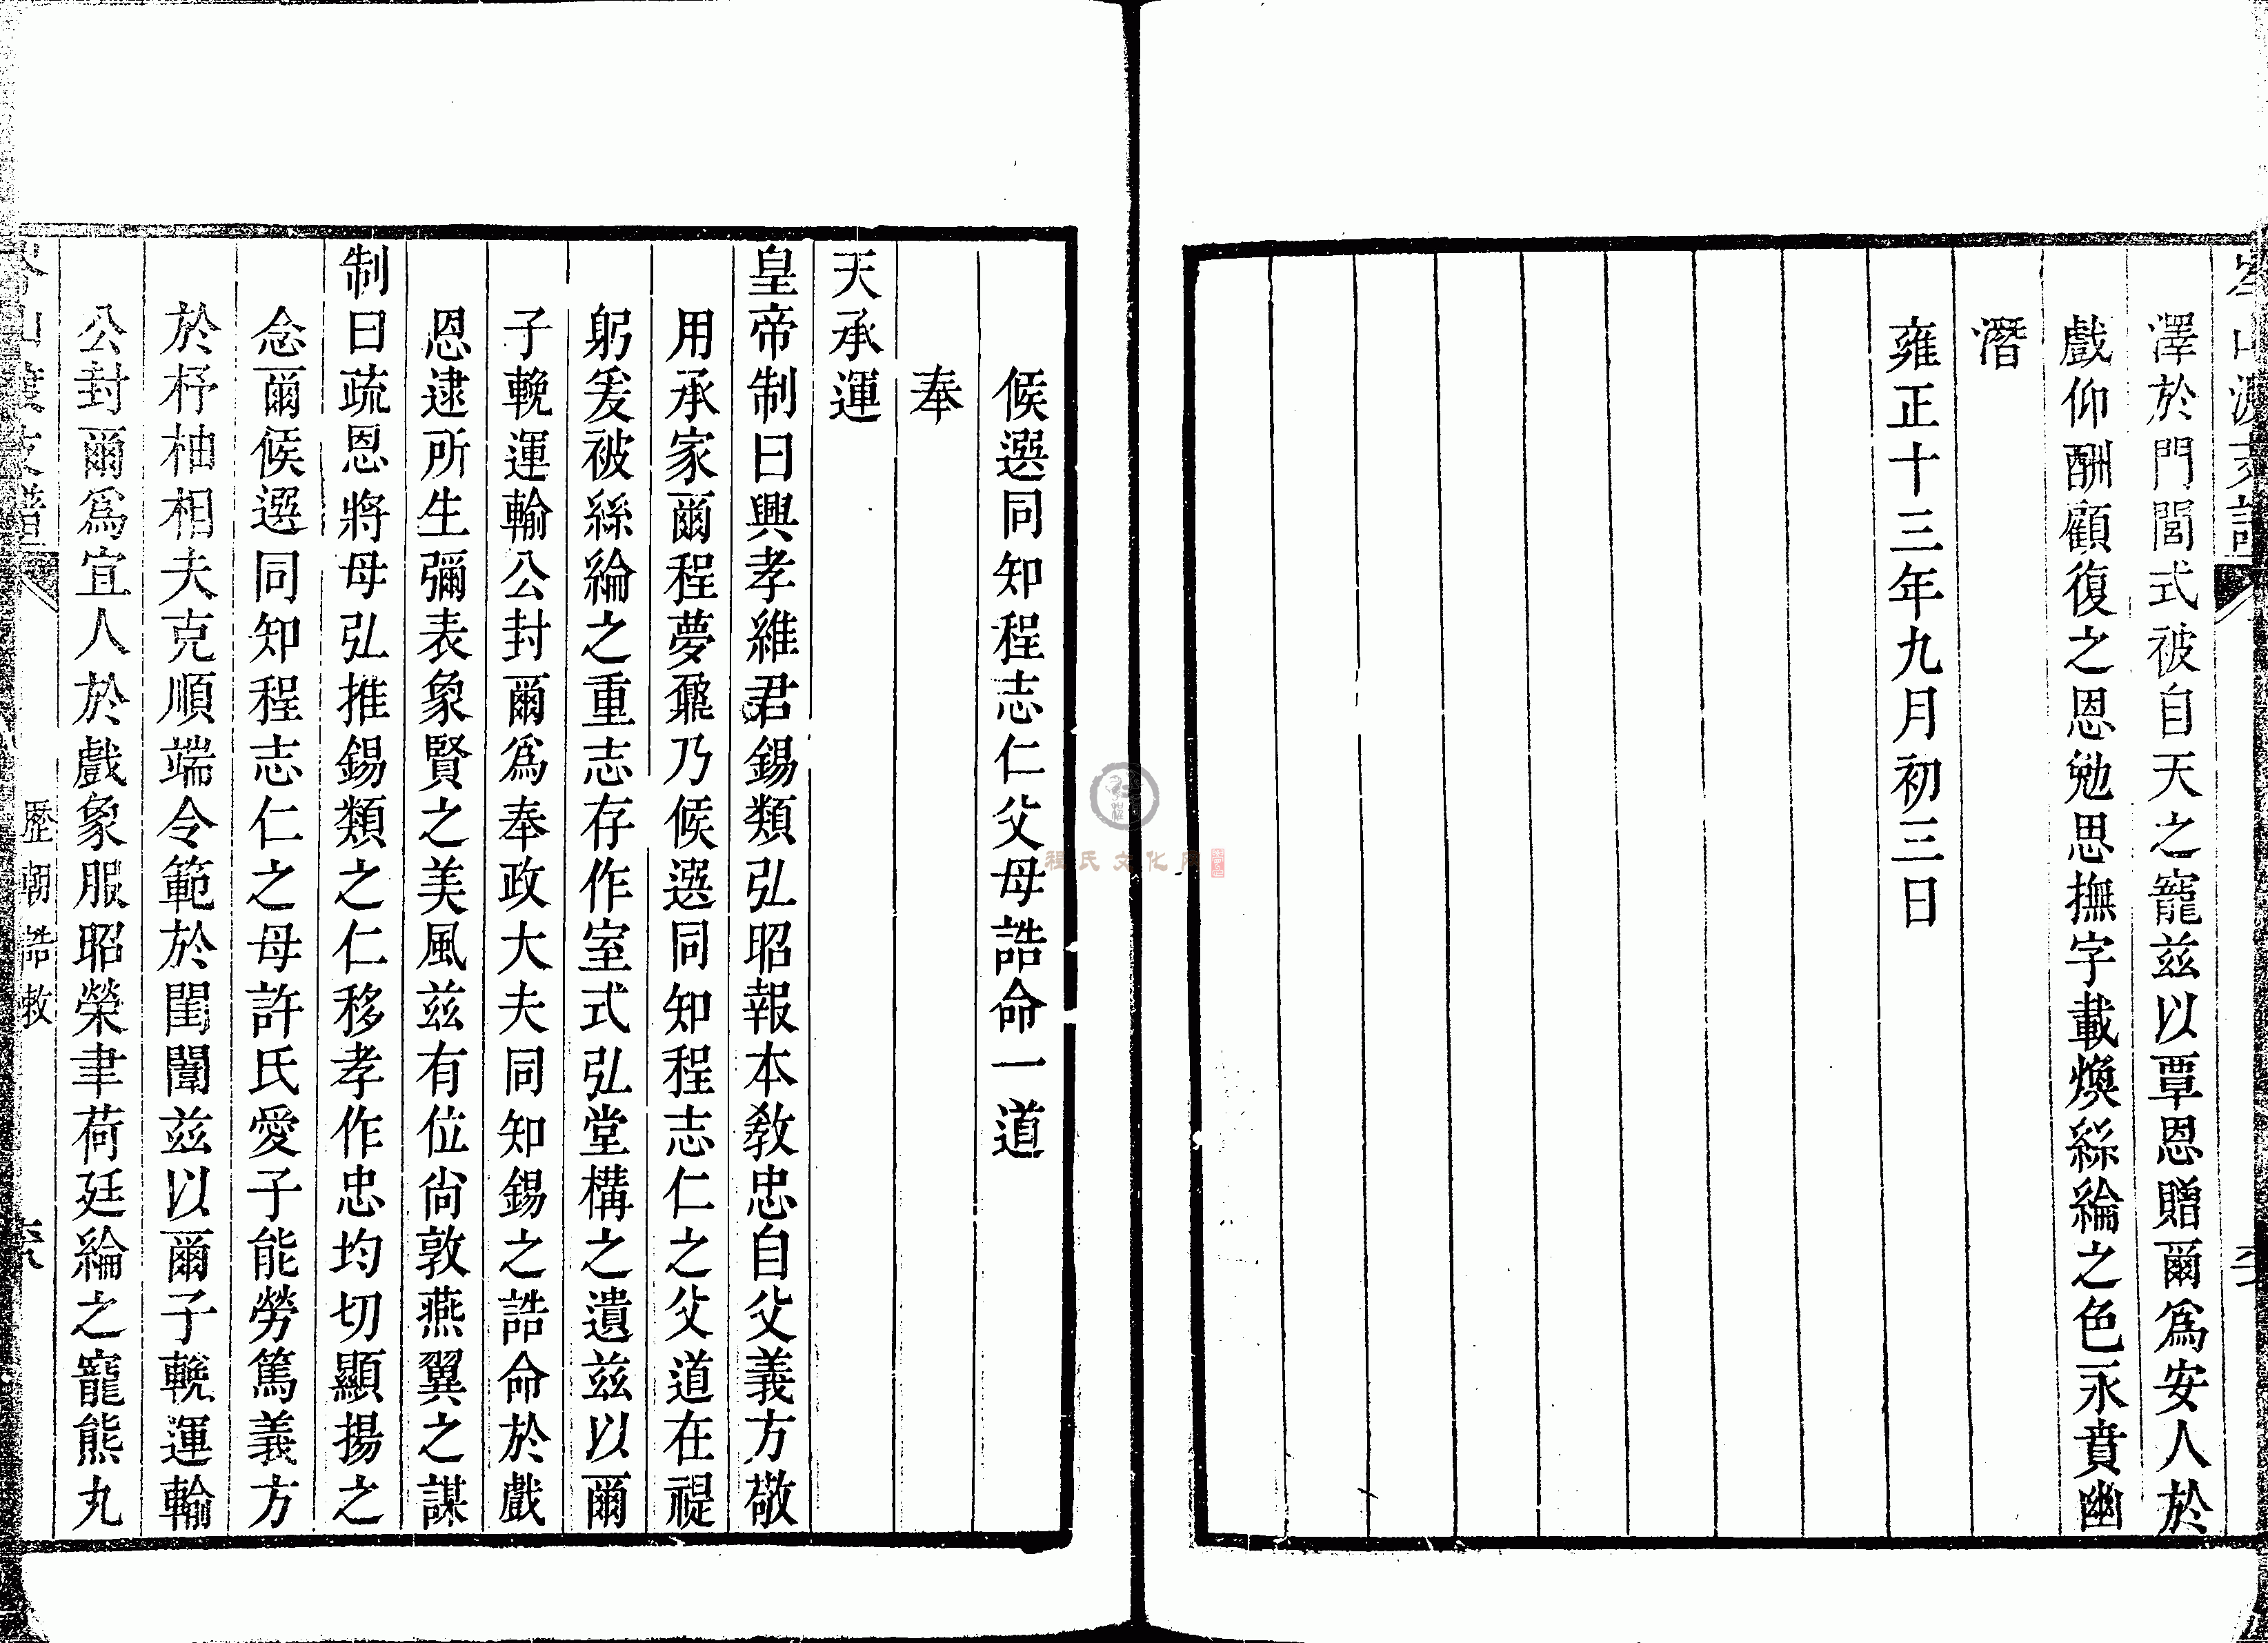 澤於門閭式被自天之寵兹以覃恩贈爾爲安人於
戲仰酬顧復之恩勉思撫字載煥絲綸之色永賁幽
潛
雍正十三年九月初三日
候選同知程志仁父母誥命一道
奉
天承運
皇帝制曰興孝維君錫類弘昭報本教忠自父義方敬
用承家爾程夢鼐乃候選同知程志仁之父道在禔
躬爰被絲綸之重志存作室式弘堂構之遺兹以爾
子輓運輸公封爾爲奉政大夫同知錫之誥命於戲
恩逮所生彌表象賢之美風兹有位尙敦燕翼之謀
制曰疏恩將母弘推錫類之仁移孝作忠均切顯揚之
念爾候選同知程志仁之母許氏愛子能勞篤義方
於杼柚相夫克順端令範於閨闈兹以爾子輓運輸
公封爾爲宜人於戲象服昭榮聿荷廷綸之寵熊丸
歷朝誥敕
程氏文化网